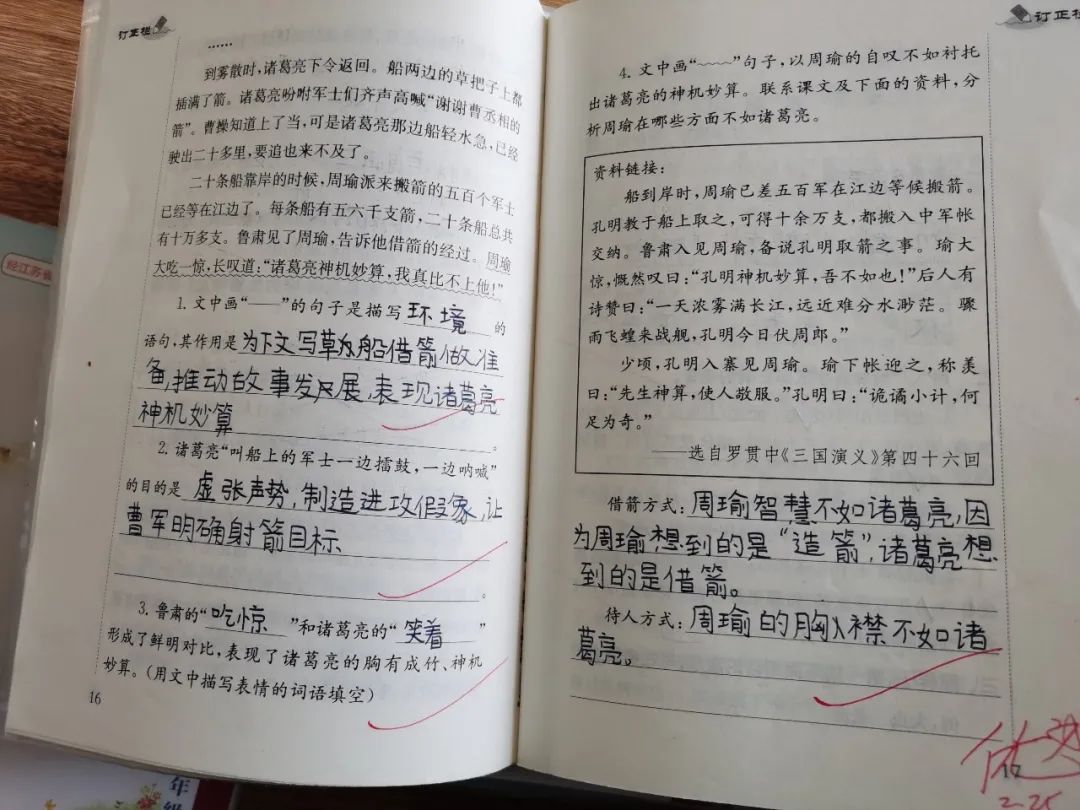 订正栏
……
到雾散时，诸葛亮下令返回。船两边的草把子上都
插满了箭。诸葛亮吩咐军士们齐声高喊“谢谢曹丞相的
箭”。曹操知道上了当，可是诸葛亮那边船轻水急，已经
驶出二十多里，要追也来不及了。
二十条船靠岸的时候，周瑜派来搬箭的五百个军士
已经等在江边了。每条船有五六千支箭，二十条船总共
有十万多支。鲁肃见了周瑜，告诉他借箭的经过。周瑜
大吃一惊，长叹道：“诸葛亮神机妙算，我真比不上他！”
1. 文中画“——”的句子是描写 环境 的
语句，其作用是 为下文写草船借箭做准
备，推动故事发展，表现诸葛亮
神机妙算。
2. 诸葛亮“叫船上的军士一边擂鼓，一边呐喊”
的目的是 虚张声势，制造进攻假象，让
曹军明确射箭目标
。
3. 鲁肃的“吃惊”和诸葛亮的“笑着”
形成了鲜明对比，表现了诸葛亮的胸有成竹、神机
妙算。（用文中描写表情的词语填空）
16
经江苏省
年级
订正栏
4. 文中画“﹏﹏”句子，以周瑜的自叹不如衬托
出诸葛亮的神机妙算。联系课文及下面的资料，分
析周瑜在哪些方面不如诸葛亮。
资料链接：
船到岸时，周瑜已差五百军在江边等候搬箭。
孔明教于船上取之，可得十余万支，都搬入中军帐
交纳。鲁肃入见周瑜，备说孔明取箭之事。瑜大
惊，慨然叹曰：“孔明神机妙算，吾不如也！”后人有
诗赞曰：“一天浓雾满长江，远近难分水渺茫。骤
雨飞蝗来战舰，孔明今日伏周郎。”
少顷，孔明入寨见周瑜。瑜下帐迎之，称美
曰：“先生神算，使人敬服。”孔明曰：“诡谲小计，何
足为奇。”
——选自罗贯中《三国演义》第四十六回
借箭方式：周瑜智慧不如诸葛亮，因
为周瑜想到的是“造箭”，诸葛亮想
到的是借箭。
待人方式：周瑜的胸襟不如诸
葛亮。
2-25